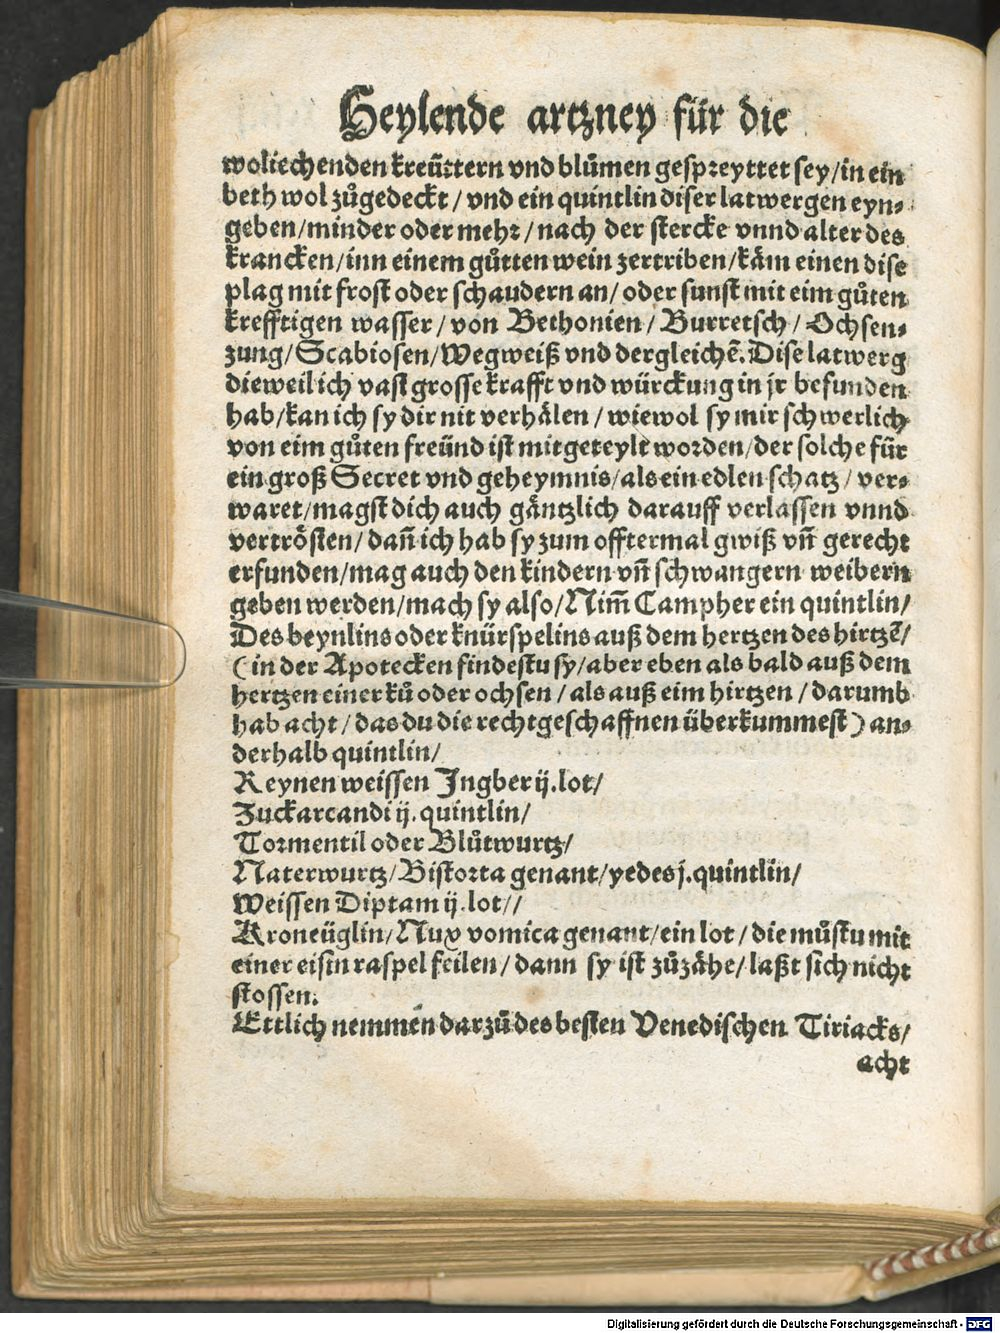 Heylende artzney für die
woliechenden kreüttern vnd blůmen gespreyttet sey/in ein
beth wol zůgedeckt/vnd ein quintlin diser latwergen eyn-
geben/minder oder mehr/nach der stercke vnnd alter des
krancken/inn einem gůtten wein zertriben/käm einen dise
plag mit frost oder schaudern an/oder sunst mit eim gůten
krefftigen wasser/von Bethonien/Burretsch/Ochsen-
zung/Scabiosen/Wegweiß vnd dergleichẽ. Dise latwerg
dieweil ich vast grosse krafft vnd würckung in jr befunden
hab/kan ich sy dir nit verhälen/wiewol sy mir schwerlich
von eim gůten freünd ist mitgeteylt worden/der solche für
ein groß Secret vnd geheymnis/als ein edlen schatz/ver-
waret/magst dich auch gäntzlich darauff verlassen vnnd
vertrösten/dañ ich hab sy zum offtermal gwiß vñ gerecht
erfunden/mag auch den kindern vñ schwangern weibern
geben werden/mach sy also/Nim̃ Campher ein quintlin/
Des beynlins oder knürspelins auß dem hertzen des hirtzẽ/
(in der Apotecken findestu sy/aber eben als bald auß dem
hertzen einer ků oder ochsen/als auß eim hirtzen/darumb
hab acht/das du die rechtgeschaffnen überkummest) an-
derhalb quintlin/
Reynen weissen Jngber ij.lot/
Zuckarcandi ij.quintlin/
Tormentil oder Blůtwurtz/
Naterwurtz/Bistorta genant/yedes j.quintlin/
Weissen Diptam ij.lot//
Kroneüglin/Nux vomica genant/ein lot/die můstu mit
einer eisin raspel feilen/dann sy ist zůzähe/laßt sich nicht
stossen.
Ettlich nemmen darzů des besten Venedischen Tiriacks/
acht
Digitalisierung gefördert durch die Deutsche Forschungsgemeinschaft - DFG